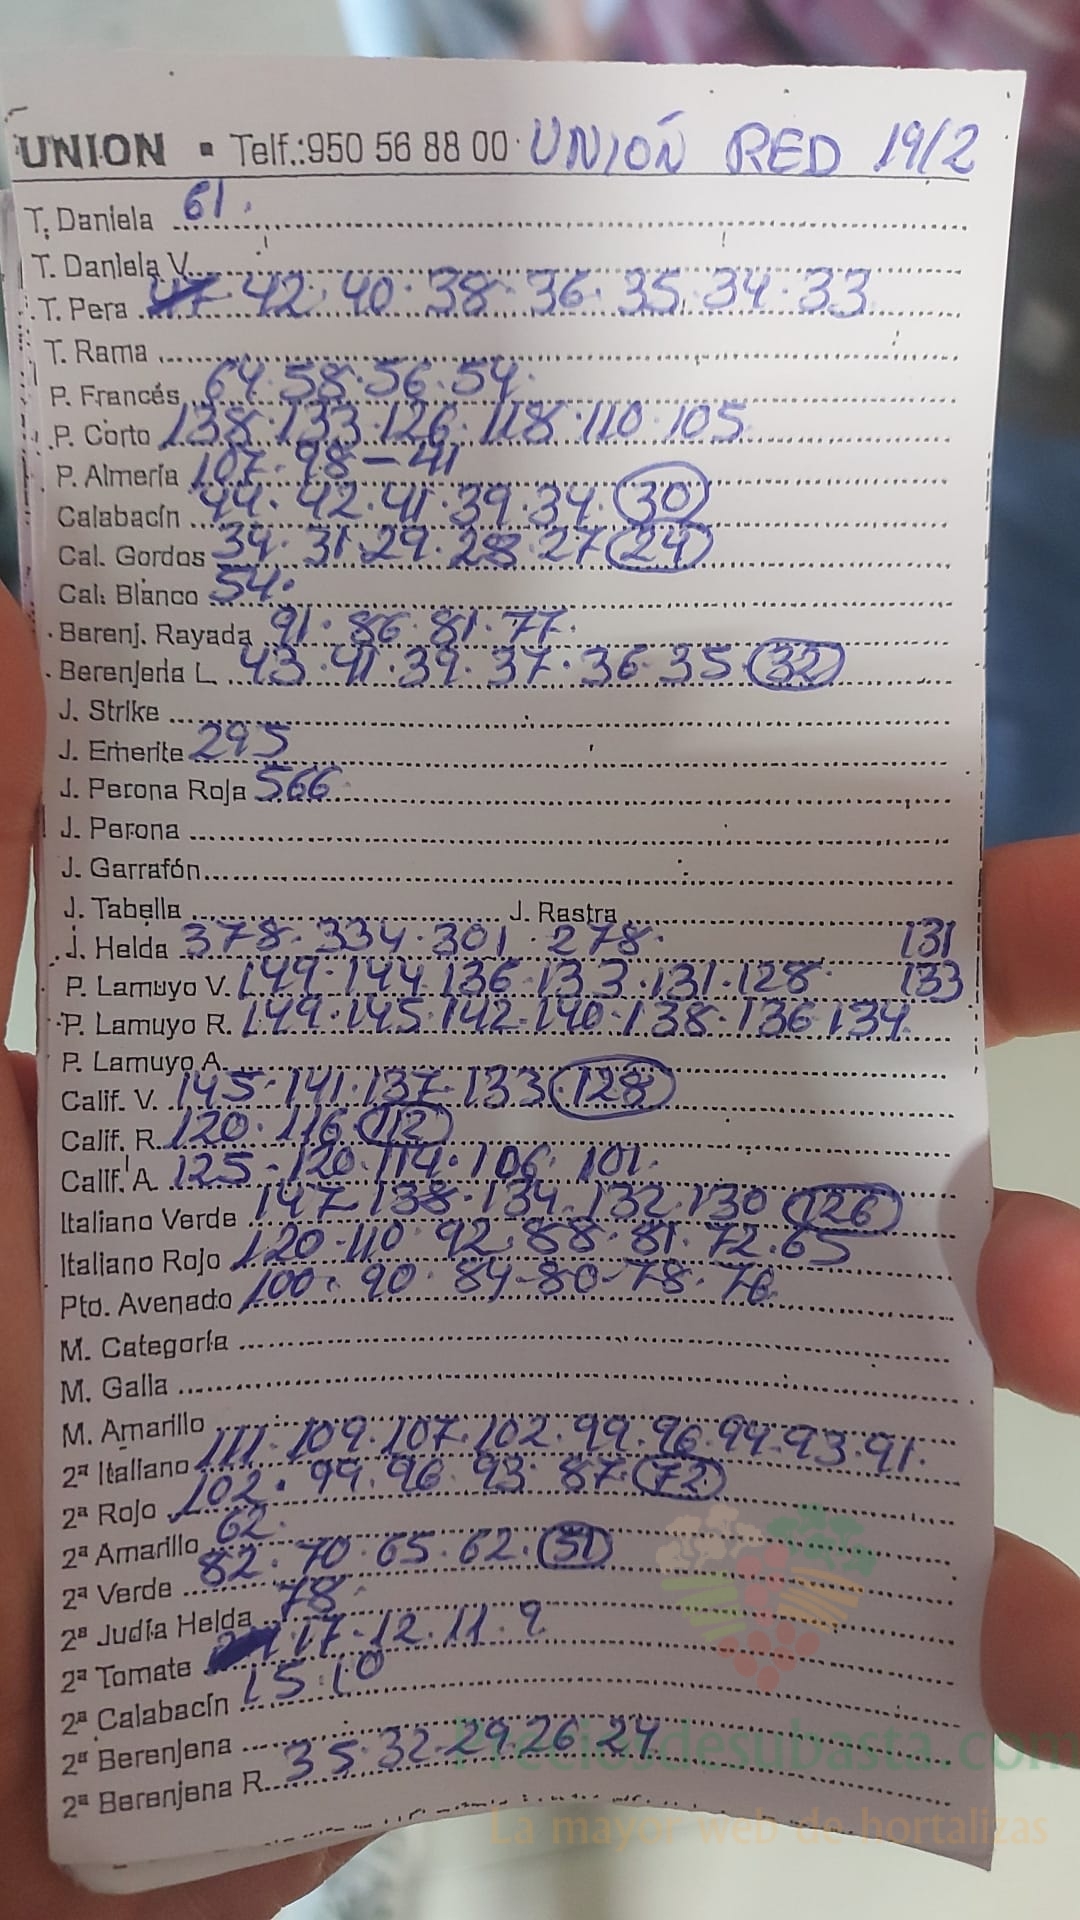 UNION ▪ Telf.:950 56 88 00 UNIÓN RED 19/2
T. Daniela 61.
T. Daniela V.
T. Pera 47 42. 40. 38. 36. 35. 34. 33
T. Rama
P. Francés 64. 58. 56. 54.
P. Corto 138. 133. 126. 118. 110. 105
P. Almería 107. 98 – 41
Calabacín 44. 42. 41. 39. 34. 30
Cal. Gordos 34. 31. 29. 28. 27 24
Cal. Blanco 54.
Berenj. Rayada 91. 86. 81. 77.
Berenjena L. 43. 41. 39. 37. 36. 35 32
J. Strike
J. Emerite 295
J. Perona Roja 566
J. Perona
J. Garrafón
J. Tabella J. Rastra
J. Helda 378. 334. 301. 278. 131
P. Lamuyo V. 149. 144. 136. 133. 131. 128 133
P. Lamuyo R. 149. 145. 142. 140. 138. 136 134
P. Lamuyo A.
Calif. V. 145. 141. 137. 133. 128
Calif. R. 120. 116. 112
Calif. A. 125. 120. 114. 106. 101.
Italiano Verde 147. 138. 134. 132. 130 126
Italiano Rojo 120. 110. 92. 88. 81. 72. 65
Pto. Avenado 100. 90. 84-80-78. 76
M. Categoría
M. Galla
M. Amarillo
2ª Italiano 111. 109. 107. 102. 99. 96. 94. 93. 91.
2ª Rojo 102. 99. 96. 93. 87. 72
2ª Amarillo 62.
2ª Verde 82. 70. 65. 62. 51
2ª Judía Helda 78.
2ª Tomate 17-12. 11. 9
2ª Calabacín 15. 10
2ª Berenjena
2ª Berenjena R. 35. 32. 29. 26 24
Preciosdesubasta.com
La mayor web de hortalizas